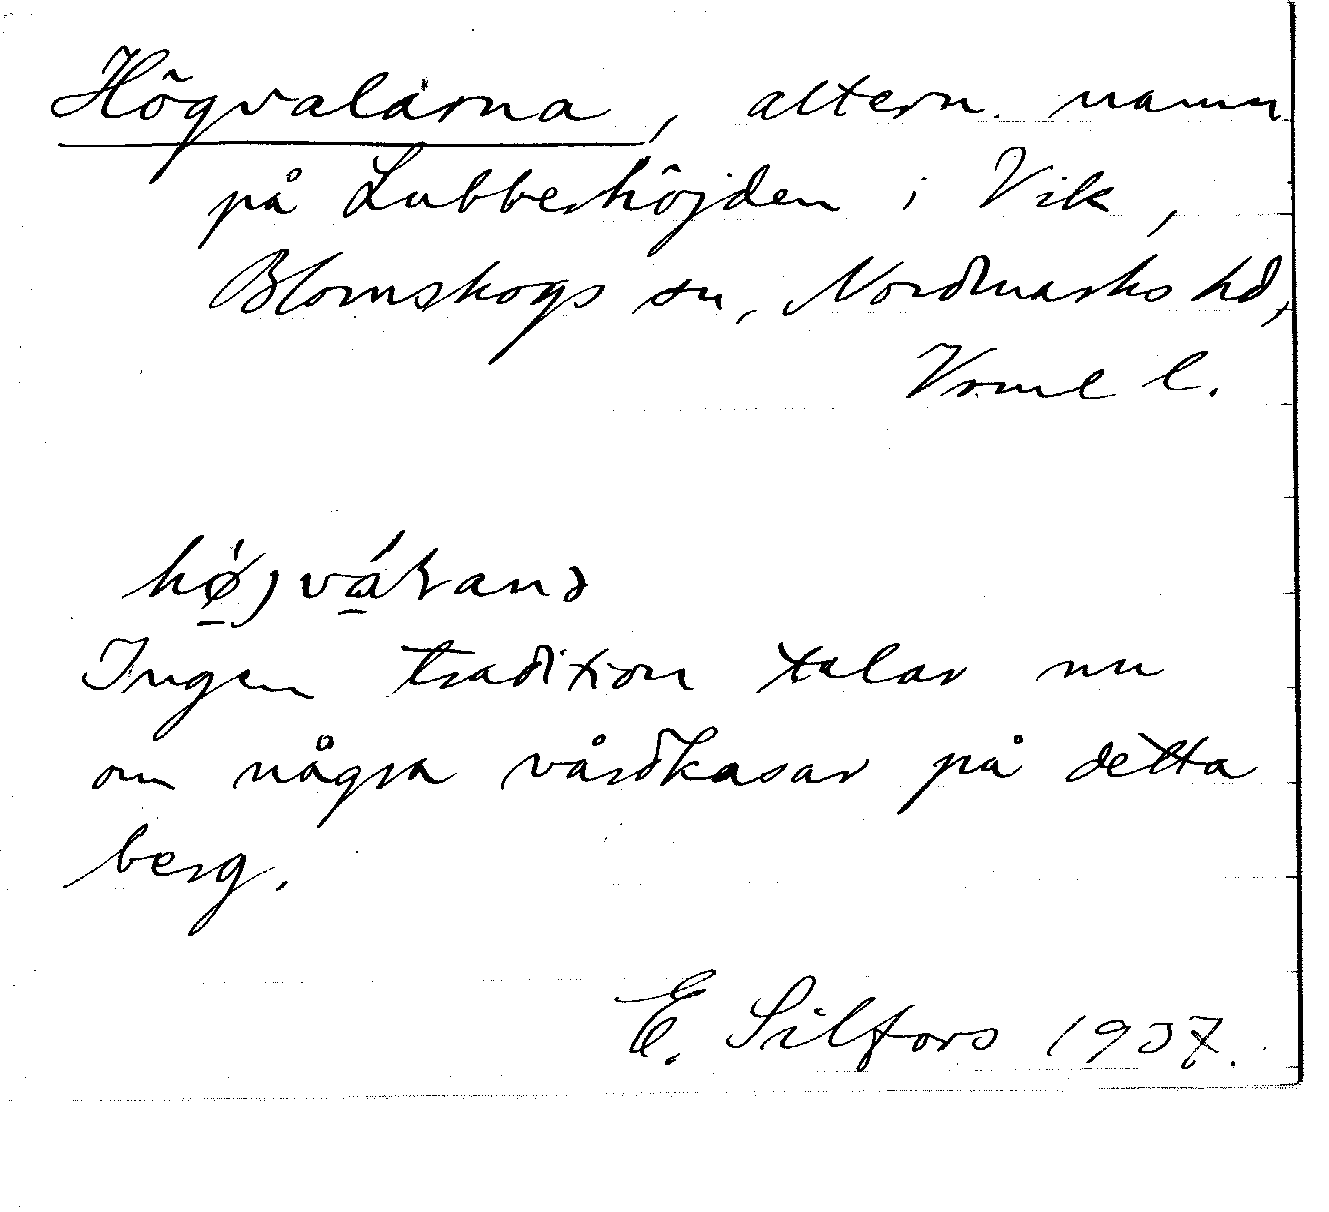 Högvalarna, altern. namn
på Lubberhöjden i Vik,
Blomskogs sn, Nordmarks hd,
Vrml l.
Ingen tradition talar nu
om några vårdkasar på detta
berg.
E. Silfors 1937.